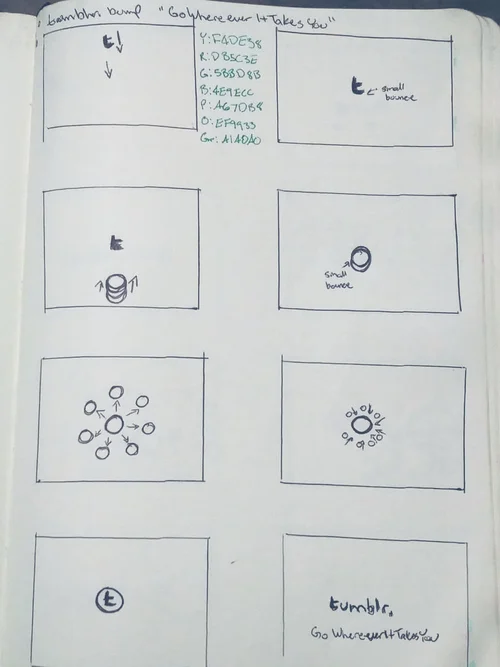 tumblr. bump "Go Where ever It Takes You"
t
Y: F4DE58
R: DB5C3E
G: 5B8D8B
B: 4E9ECC
P: A67DB8
O: EF9933
Gr: A1A0A0
t
small
bounce
t
small
bounce
t
tumblr.
Go Where ever It Takes You